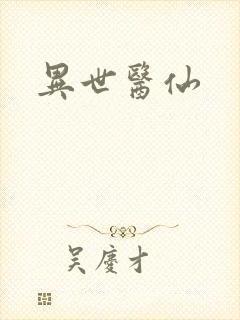 異世醫仙
吴慶才